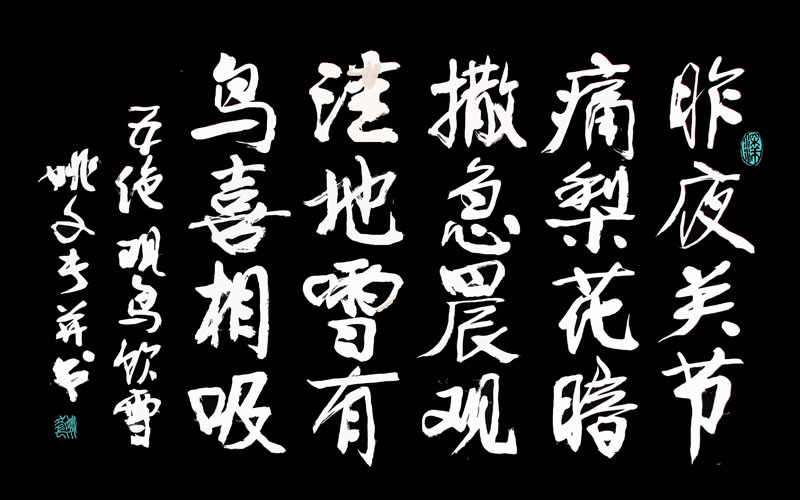 昨夜关节
痛梨花暗
撒急晨观
洼地雪有
鸟喜相吸
五绝观鸟饮雪
姚文专并书